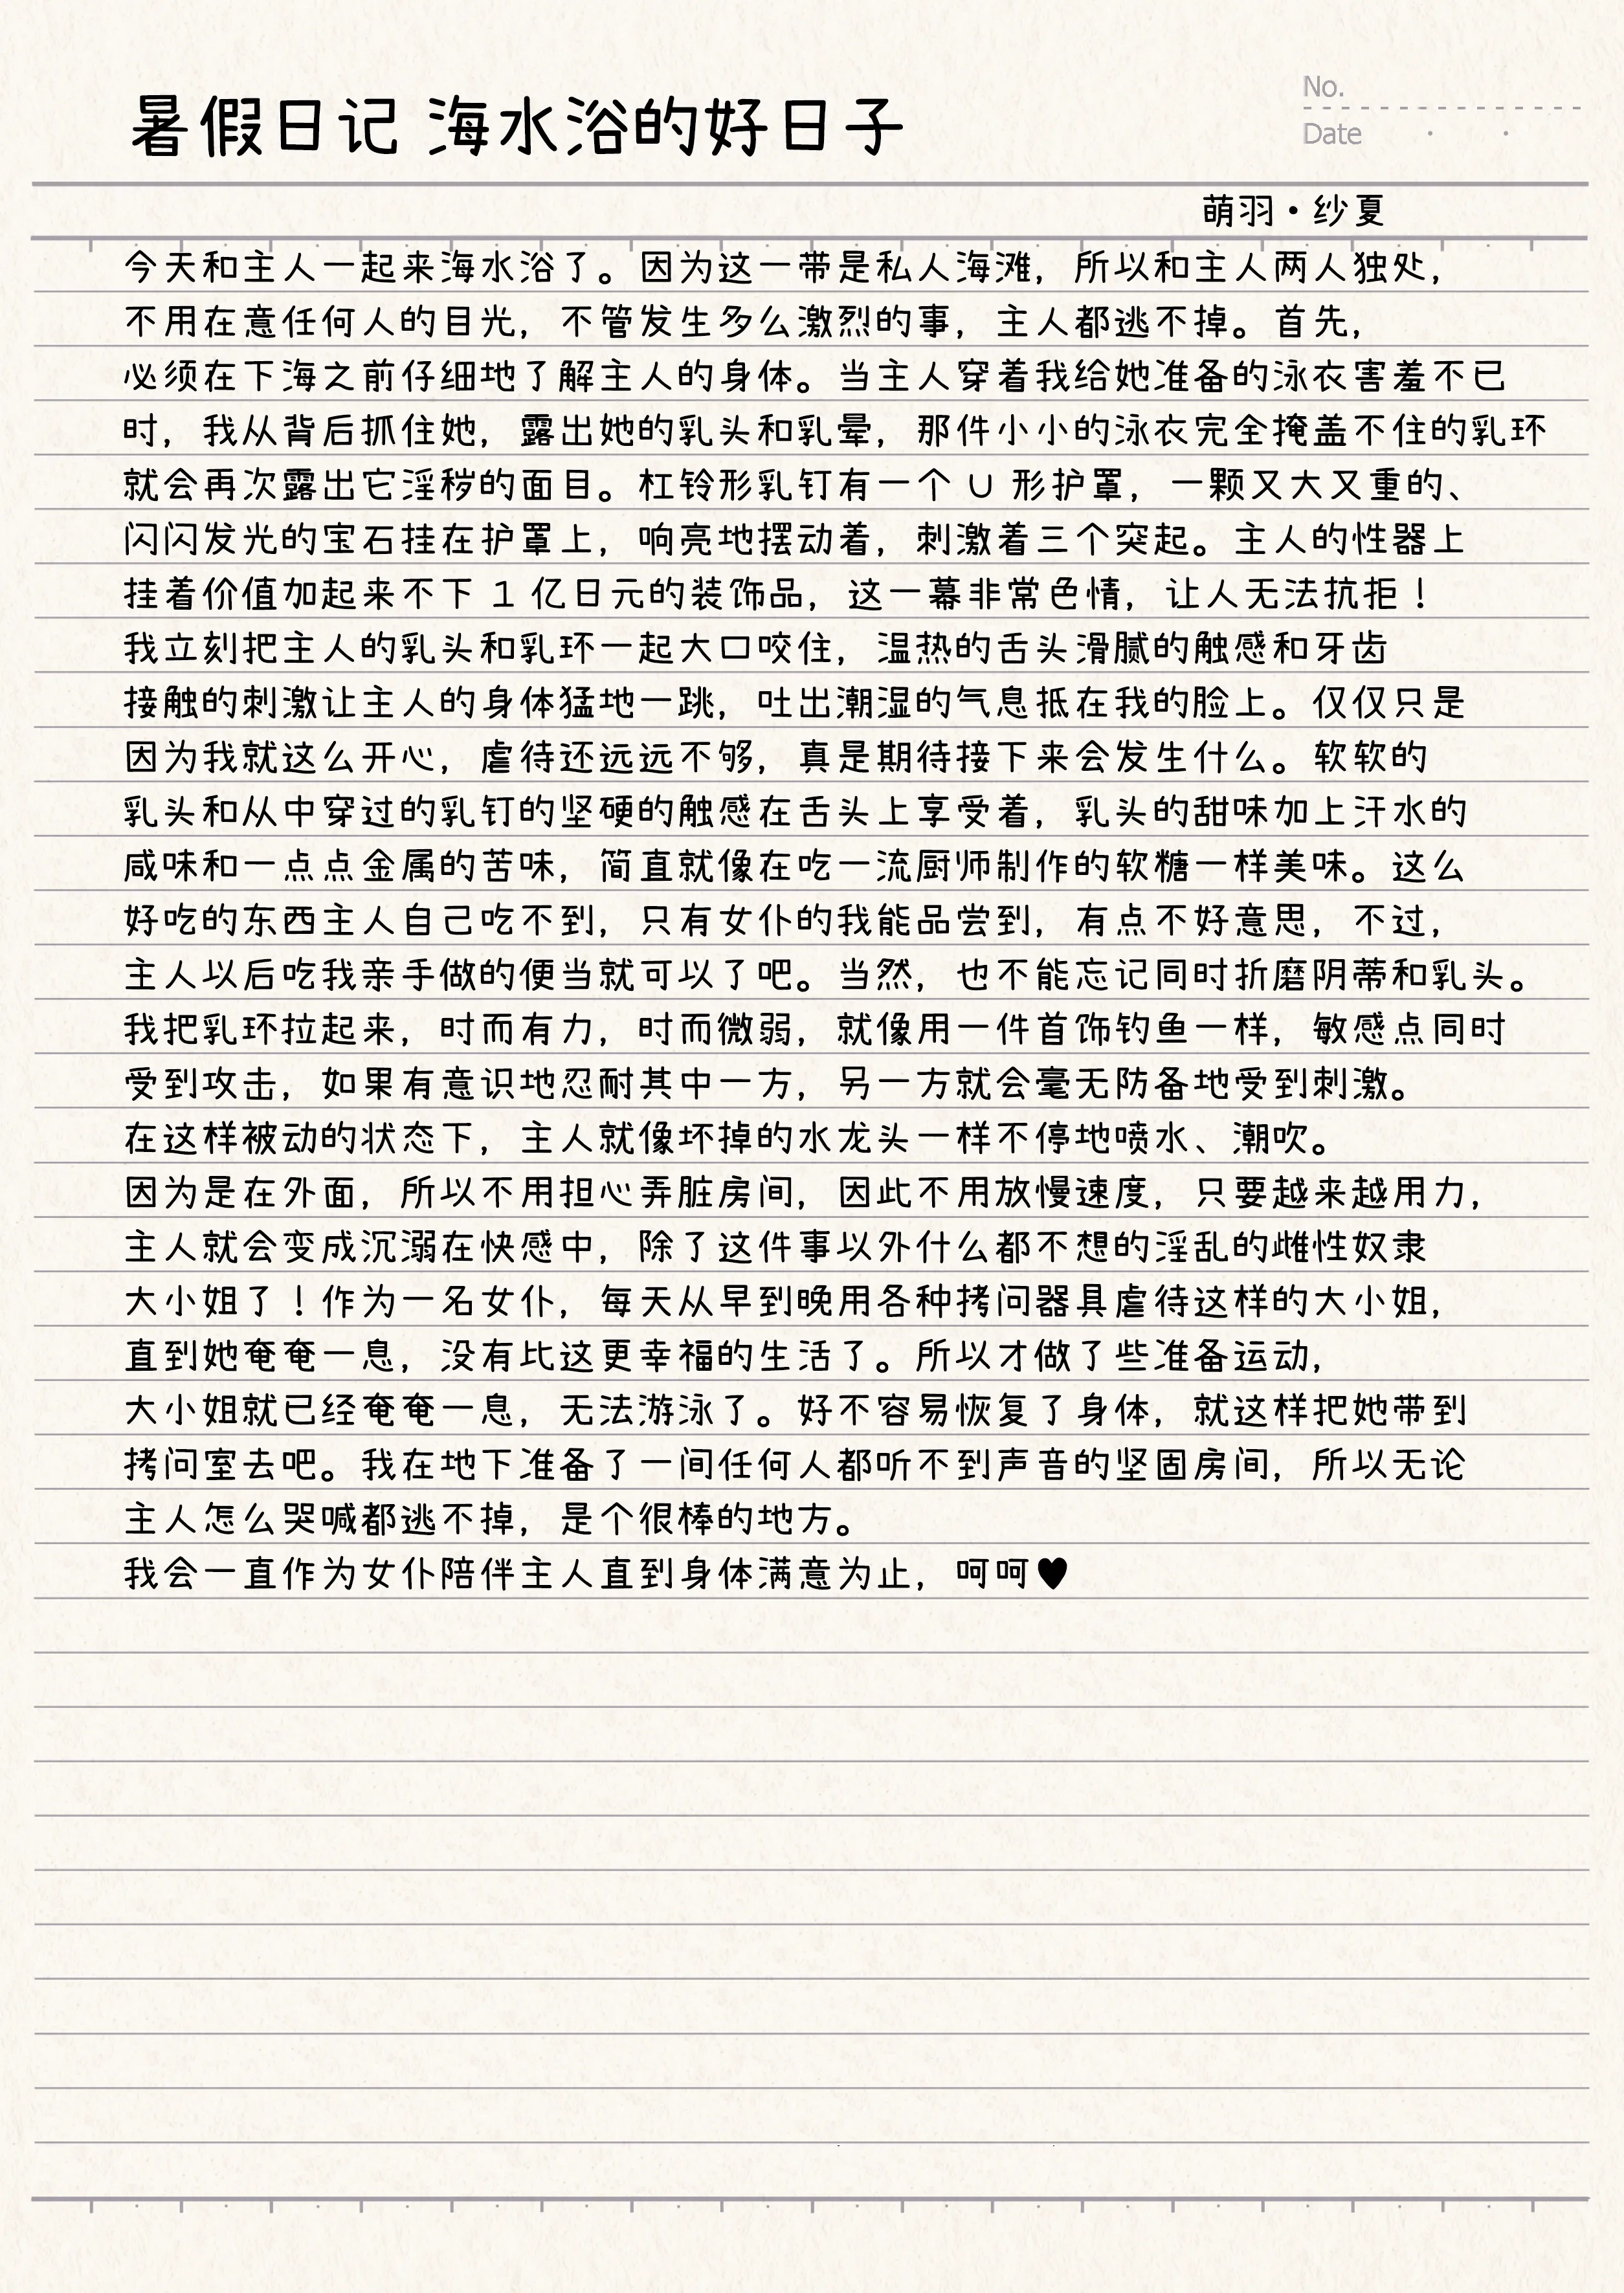 暑假日记 海水浴的好日子
No.
Date
萌羽·纱夏
今天和主人一起来海水浴了。因为这一带是私人海滩，所以和主人两人独处，
不用在意任何人的目光，不管发生多么激烈的事，主人都逃不掉。首先，
必须在下海之前仔细地了解主人的身体。当主人穿着我给她准备的泳衣害羞不已
时，我从背后抓住她，露出她的乳头和乳晕，那件小小的泳衣完全掩盖不住的乳环
就会再次露出它淫秽的面目。杠铃形乳钉有一个 U 形护罩，一颗又大又重的、
闪闪发光的宝石挂在护罩上，响亮地摆动着，刺激着三个突起。主人的性器上
挂着价值加起来不下 1 亿日元的装饰品，这一幕非常色情，让人无法抗拒！
我立刻把主人的乳头和乳环一起大口咬住，温热的舌头滑腻的触感和牙齿
接触的刺激让主人的身体猛地一跳，吐出潮湿的气息抵在我的脸上。仅仅只是
因为我就这么开心，虐待还远远不够，真是期待接下来会发生什么。软软的
乳头和从中穿过的乳钉的坚硬的触感在舌头上享受着，乳头的甜味加上汗水的
咸味和一点点金属的苦味，简直就像在吃一流厨师制作的软糖一样美味。这么
好吃的东西主人自己吃不到，只有女仆的我能品尝到，有点不好意思，不过，
主人以后吃我亲手做的便当就可以了吧。当然，也不能忘记同时折磨阴蒂和乳头。
我把乳环拉起来，时而有力，时而微弱，就像用一件首饰钓鱼一样，敏感点同时
受到攻击，如果有意识地忍耐其中一方，另一方就会毫无防备地受到刺激。
在这样被动的状态下，主人就像坏掉的水龙头一样不停地喷水、潮吹。
因为是在外面，所以不用担心弄脏房间，因此不用放慢速度，只要越来越用力，
主人就会变成沉溺在快感中，除了这件事以外什么都不想的淫乱的雌性奴隶
大小姐了！作为一名女仆，每天从早到晚用各种拷问器具虐待这样的大小姐，
直到她奄奄一息，没有比这更幸福的生活了。所以才做了些准备运动，
大小姐就已经奄奄一息，无法游泳了。好不容易恢复了身体，就这样把她带到
拷问室去吧。我在地下准备了一间任何人都听不到声音的坚固房间，所以无论
主人怎么哭喊都逃不掉，是个很棒的地方。
我会一直作为女仆陪伴主人直到身体满意为止，呵呵♥